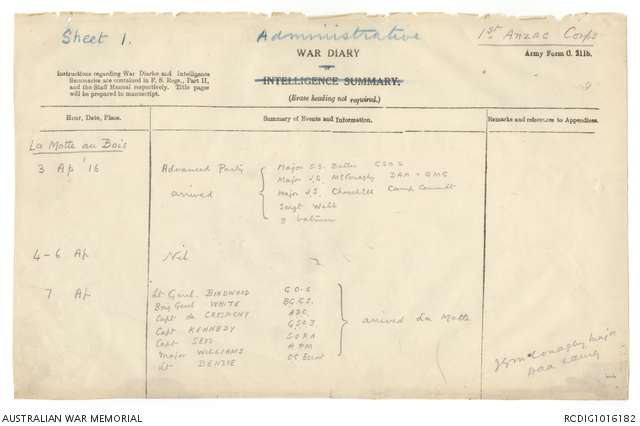 Sheet 1.
Administrative
1st Anzac Corps
WAR DIARY
OR
INTELLIGENCE SUMMARY.
(Erase heading not required.)
Army Form C. 2118.
Instructions regarding War Diaries and Intelligence
Summaries are contained in F. S. Regs., Part II,
and the Staff Manual respectively. Title pages
will be prepared in manuscript.
Hour, Date, Place.
Summary of Events and Information.
Remarks and references to Appendices.
La Motte au Bois
3 Ap '16
Advanced Party
arrived
Major S.S. Butler GSO 2
Major J.G. McConaghy DAA & QMG
Major J.S. Churchill Camp Commdt
Sergt Webb
4-6 Ap
Nil
7 Ap
Lt Genl. BIRDWOOD G.O.C
Brig Genl WHITE BG.G.S.
Capt de CRESPIGNY ADC.
Capt KENNEDY GSO3
Capt
Major WILLIAMS APM
Lt
arrived La Motte
Major
AUSTRALIAN WAR MEMORIAL
RCDIG1016182